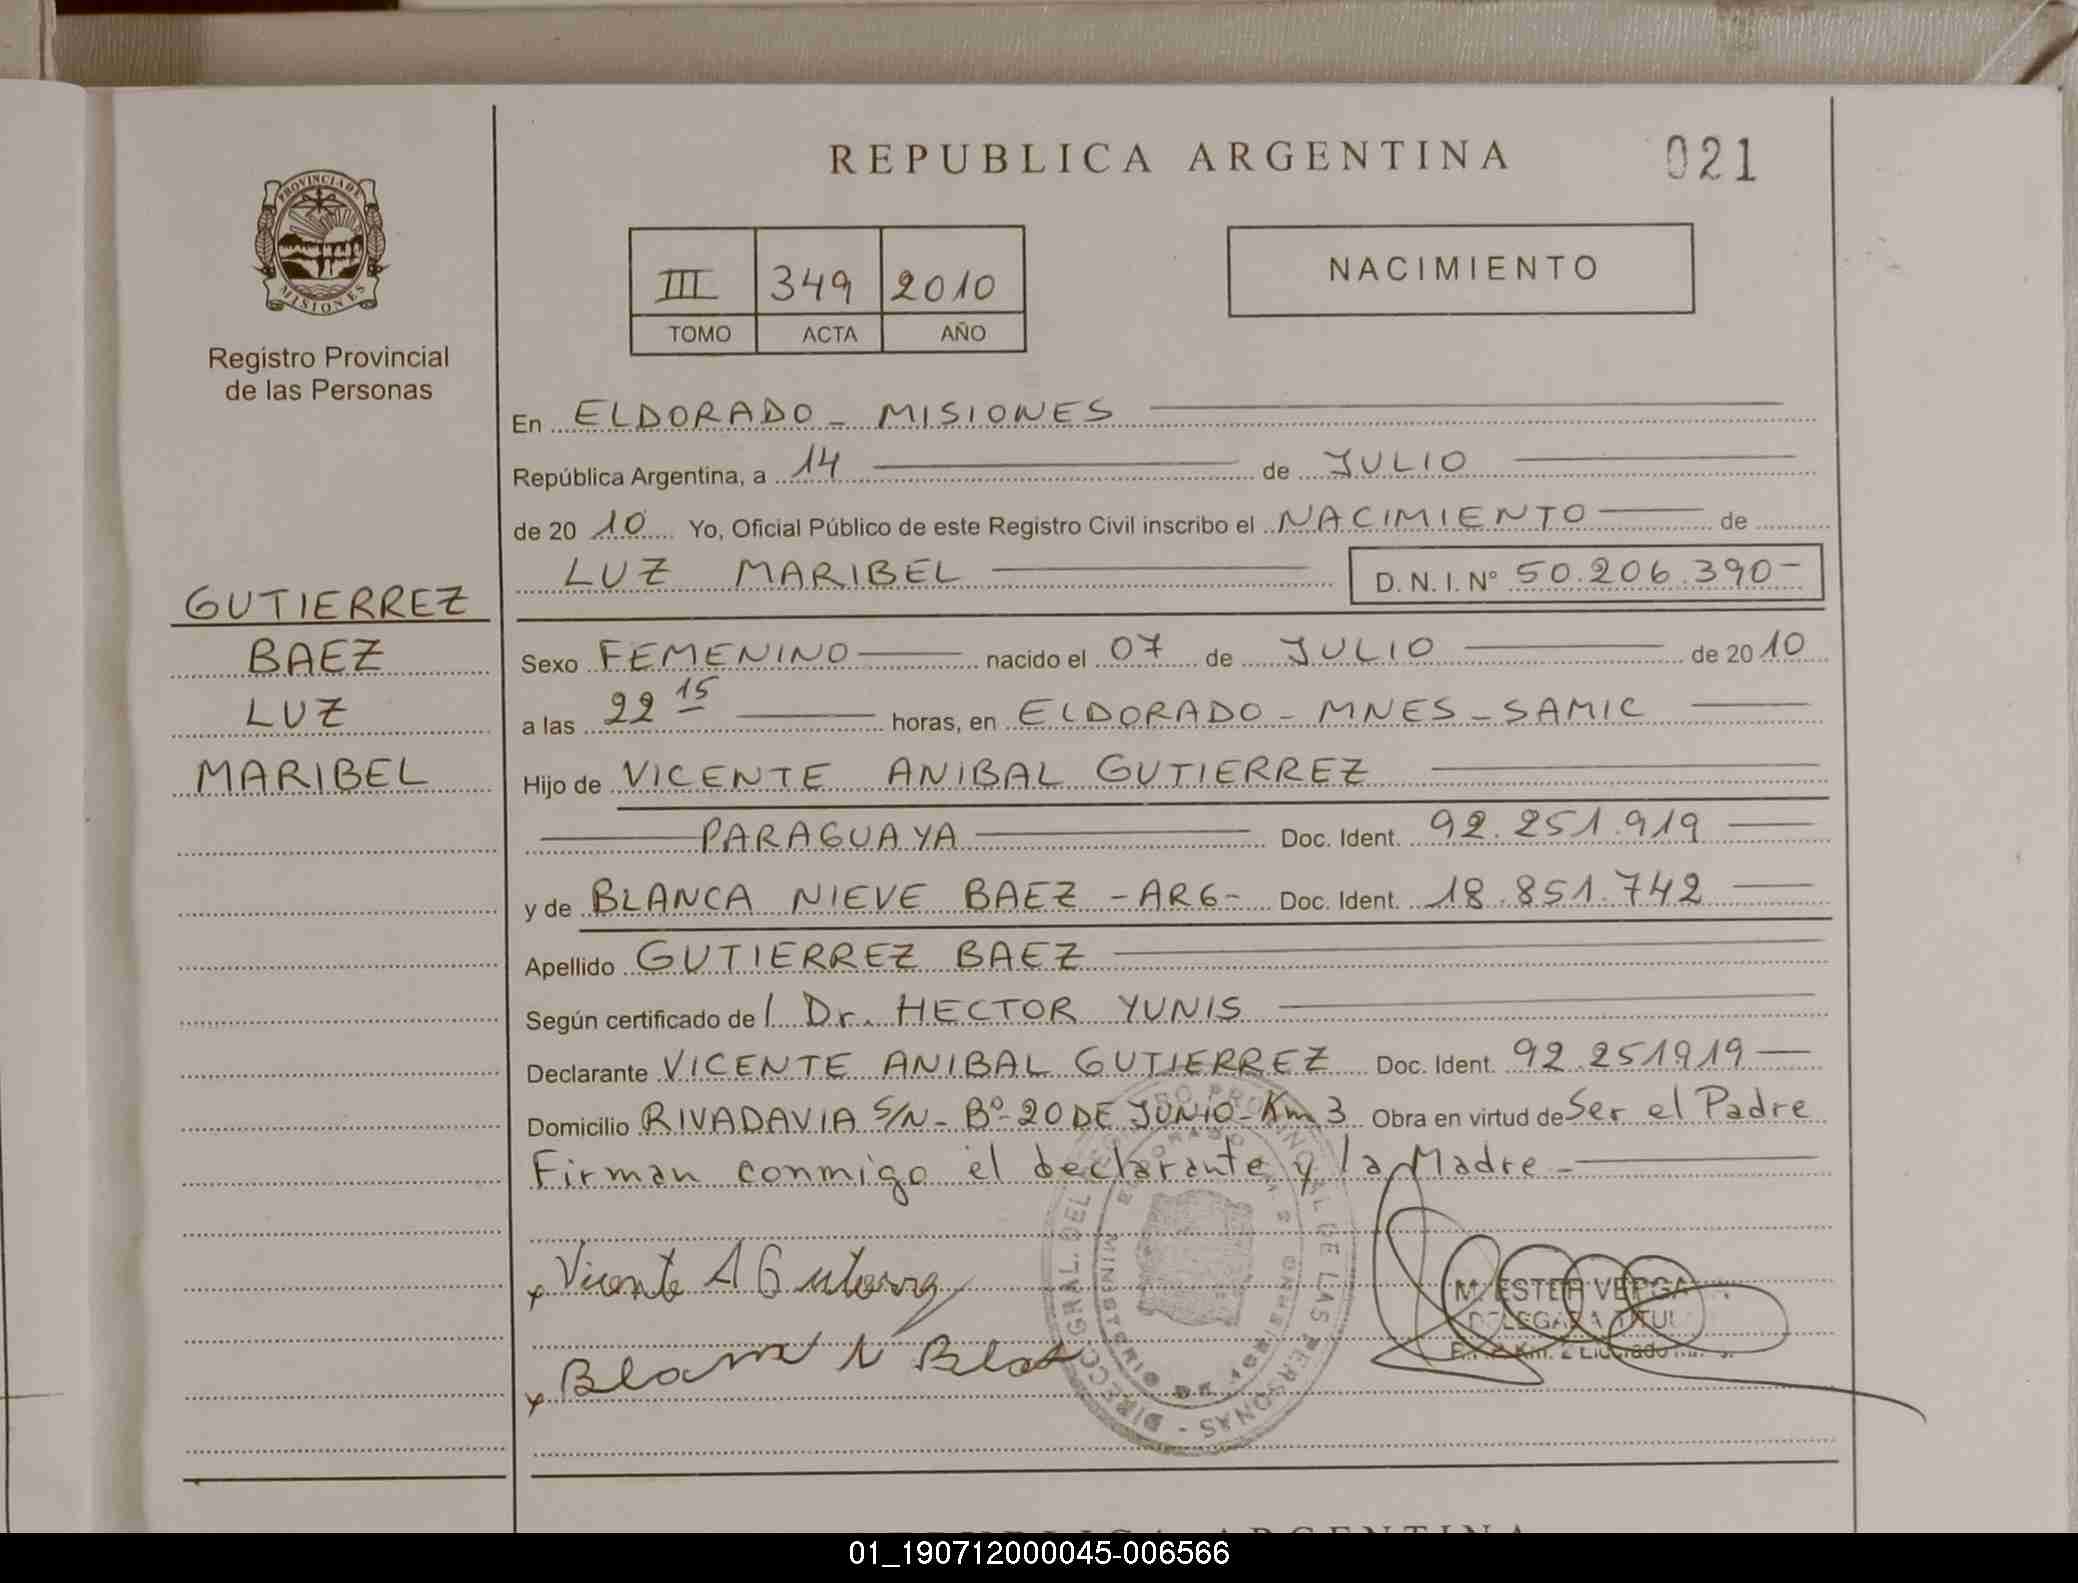 REPUBLICA ARGENTINA
021
PROVINCIA DE
MISIONES
Registro Provincial
de las Personas
III 349 2010
TOMO ACTA AÑO
NACIMIENTO
En ELDORADO - MISIONES
República Argentina, a 14 de JULIO
de 2010 Yo, Oficial Público de este Registro Civil inscribo el NACIMIENTO de
LUZ MARIBEL D.N.I.Nº 50.206.390-
GUTIERREZ
BAEZ
LUZ
MARIBEL
Sexo FEMENINO nacido el 07 de JULIO de 2010
a las 22 15 horas, en ELDORADO - MNES - SAMIC
Hijo de VICENTE ANIBAL GUTIERREZ
PARAGUAYA Doc. Ident. 92.251.919
y de BLANCA NIEVE BAEZ - ARG - Doc. Ident. 18.851.742
Apellido GUTIERREZ BAEZ
Según certificado de l Dr. HECTOR YUNIS
Declarante VICENTE ANIBAL GUTIERREZ Doc. Ident. 92.251919
Domicilio RIVADAVIA S/N - Bº 20 DE JUNIO - Km 3 Obra en virtud de Ser el Padre
Firman conmigo el declarante y la Madre -
Vicente A Gutierrez
M. ESTER
DELEGADA TITUL
Blanca N Baez
DIRECC. GRAL. DEL REGISTRO PROVINCIAL DE LAS PERSONAS
MINISTERIO DE
REPUBLICA ARGENTINA
01_190712000045-006566